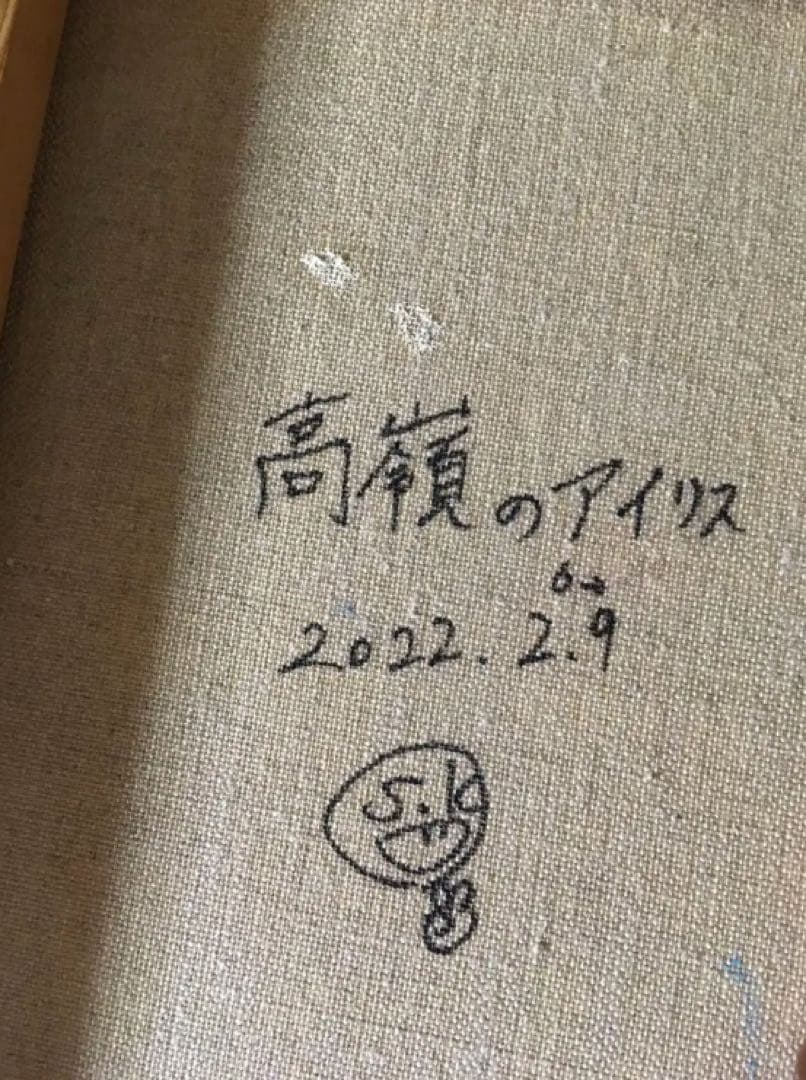 高嶺のアイリス
2022.2.9
S.K